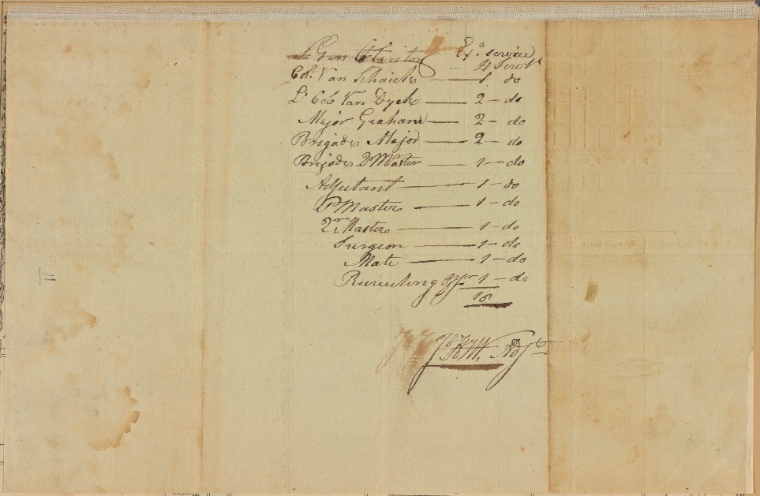 Gen Clinton Ex. service
4 Servts
Col. Van Schaick — 1 do
Lt Colo Van Dyck — 2 - do
Major Graham — 2 - do
Brigade Major — 2 - do
Brigade QMaster — 1 - do
Adjutant — 1 - do
PMaster — 1 - do
Qr Master — 1 - do
Surgeon — 1 - do
Mate — 1 - do
Recruiting Offr 1 - do
Adjt